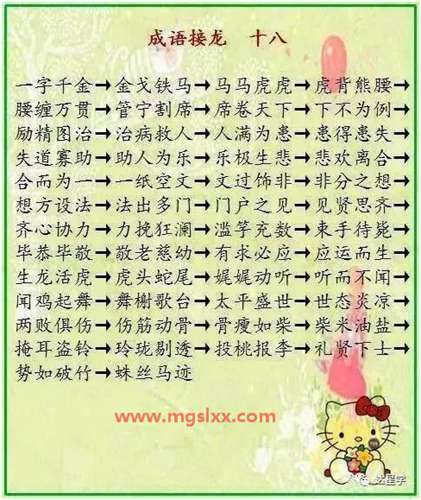 成语接龙 十八
一字千金→金戈铁马→马马虎虎→虎背熊腰→
腰缠万贯→管宁割席→席卷天下→下不为例→
励精图治→治病救人→人满为患→患得患失→
失道寡助→助人为乐→乐极生悲→悲欢离合→
合而为一→一纸空文→文过饰非→非分之想→
想方设法→法出多门→门户之见→见贤思齐→
齐心协力→力挽狂澜→滥竽充数→束手待毙→
毕恭毕敬→敬老慈幼→有求必应→应运而生→
生龙活虎→虎头蛇尾→娓娓动听→听而不闻→
闻鸡起舞→舞榭歌台→太平盛世→世态炎凉→
两败俱伤→伤筋动骨→骨瘦如柴→柴米油盐→
掩耳盗铃→玲珑剔透→投桃报李→礼贤下士→
势如破竹→蛛丝马迹
www.mgslxx.com